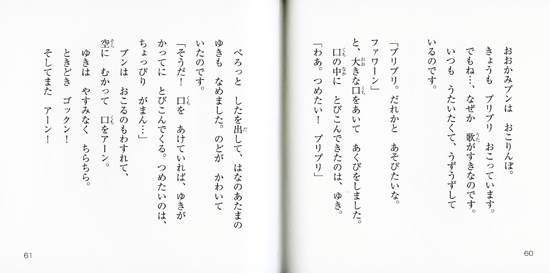 おおかみブンは　おこりんぼ。
きょうも　プリプリ　おこっています。
でもね…、なぜか　歌がすきなのです。
いつも　うたいたくて、うずうずして
いるのです。
「プリプリ。だれかと　あそびたいな。
ファワーン」
と、大きな口をあいて　あくびをしました。
口の中に　とびこんできたのは、ゆき。
「わあ。つめたい！　プリプリ」
60
ぺろっと　したを出して、はなのあたまの
ゆきも　なめました。のどが　かわいて
いたのです。
「そうだ！　口を　あけていれば、ゆきが
かってに　とびこんでくる。つめたいのは、
ちょっぴり　がまん…」
ブンは　おこるのもわすれて、
空に　むかって　口をアーン。
ゆきは　やすみなく　ちらちら。
ときどき　ゴックン！
そしてまた　アーン！
61